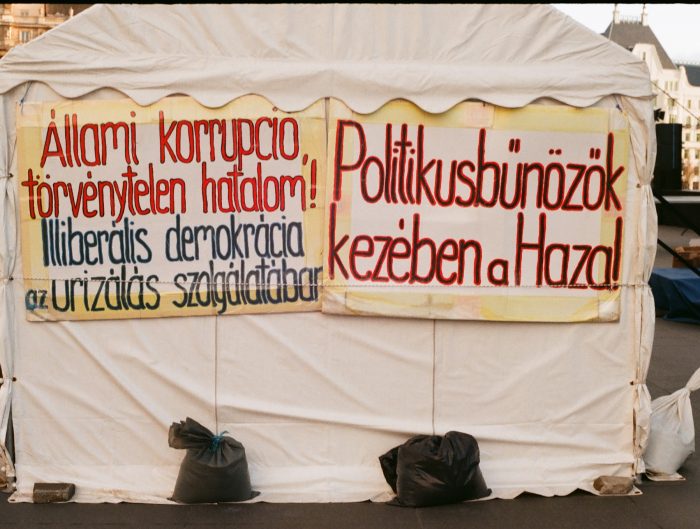 Állami korrupció,
törvénytelen hatalom!
Illiberális demokrácia
az urizálás szolgálatában
Politikusbűnözők
kezében a Haza!